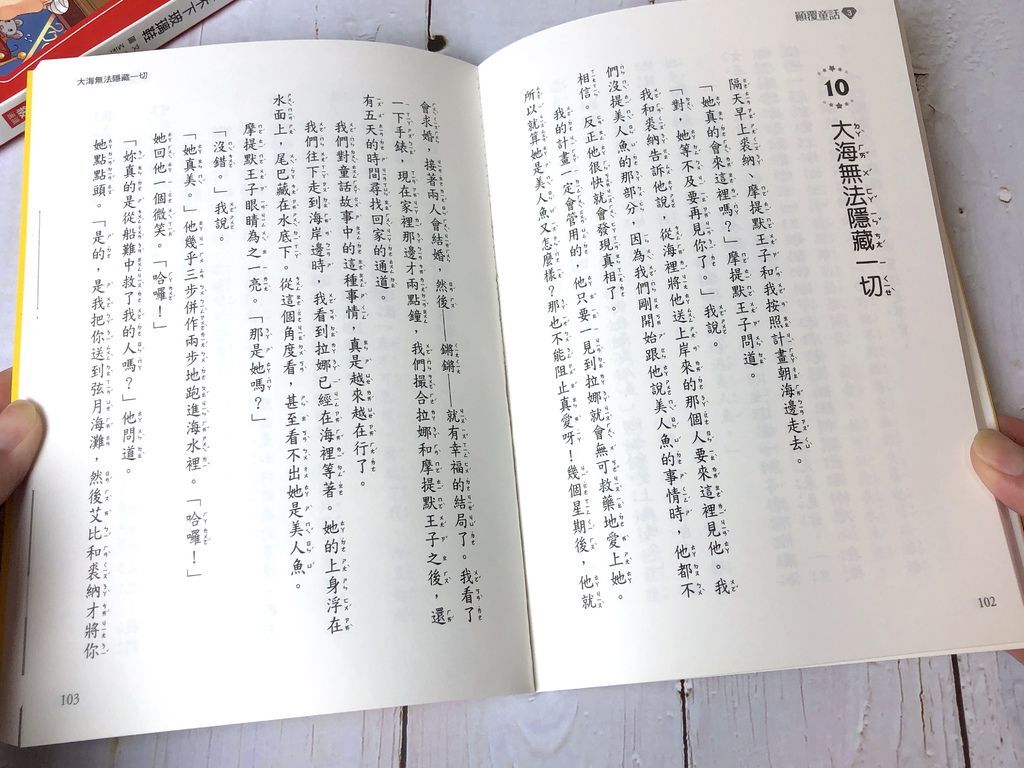 顛覆童話 3
10
大海無法隱藏一切
隔天早上裘納、摩提默王子和我按照計畫朝海邊走去。
「她真的會來這裡嗎？」摩提默王子問道。
「對，她等不及要再見你了。」我說。
我和裘納告訴他說，從海裡將他送上岸來的那個人要來這裡見他。我
們沒提美人魚的那部分，因為我們剛開始跟他說美人魚的事情時，他都不
相信。反正他很快就會發現真相了。
我的計畫一定會管用的，他只要一見到拉娜就會無可救藥地愛上她。
所以就算她是美人魚又怎麼樣？那也不能阻止真愛呀！幾個星期後，他就
102
大海無法隱藏一切
會求婚，接著兩人會結婚，然後——鏘鏘——就有幸福的結局了。我看了
一下手錶，現在家裡那邊才兩點鐘，我們撮合拉娜和摩提默王子之後，還
有五天的時間尋找回家的通道。
我們對童話故事中的這種事情，真是越來越在行了。
我們往下走到海岸邊時，我看到拉娜已經在海裡等著。她的上身浮在
水面上，尾巴藏在水底下。從這個角度看，甚至看不出她是美人魚。
摩提默王子眼睛為之一亮。「那是她嗎？」
「沒錯。」我說。
「她真美。」他幾乎三步併作兩步地跑進海水裡。「哈囉！」
她回他一個微笑。「哈囉！」
「妳真的是從船難中救了我的人嗎？」他問道。
她點點頭。「是的，是我把你送到弦月海灘，然後艾比和裘納才將你
103